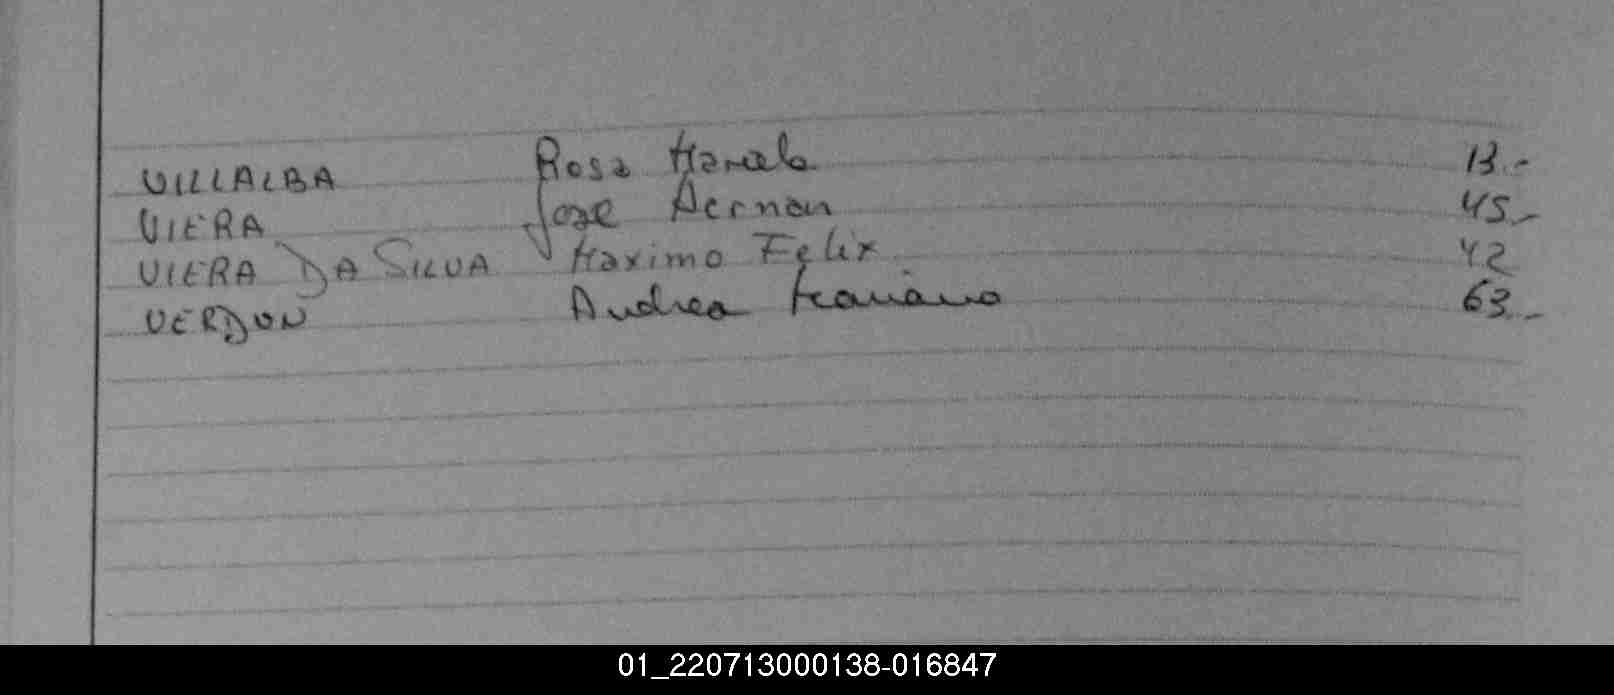 VILLALBA Rosa Marcela 13.-
VIERA Jose Hernan 45.-
VIERA DA SILVA Maximo Felix 42
VERDUN Andrea Mariana 63.-
01_220713000138-016847